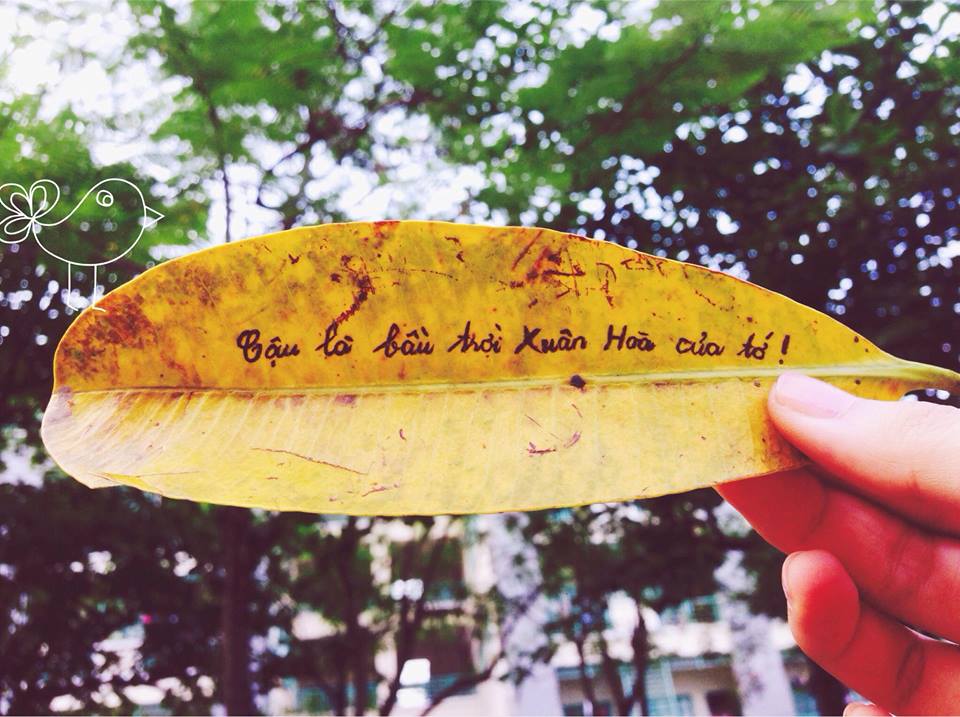 Cậu là bầu trời Xuân Hoà của tớ!